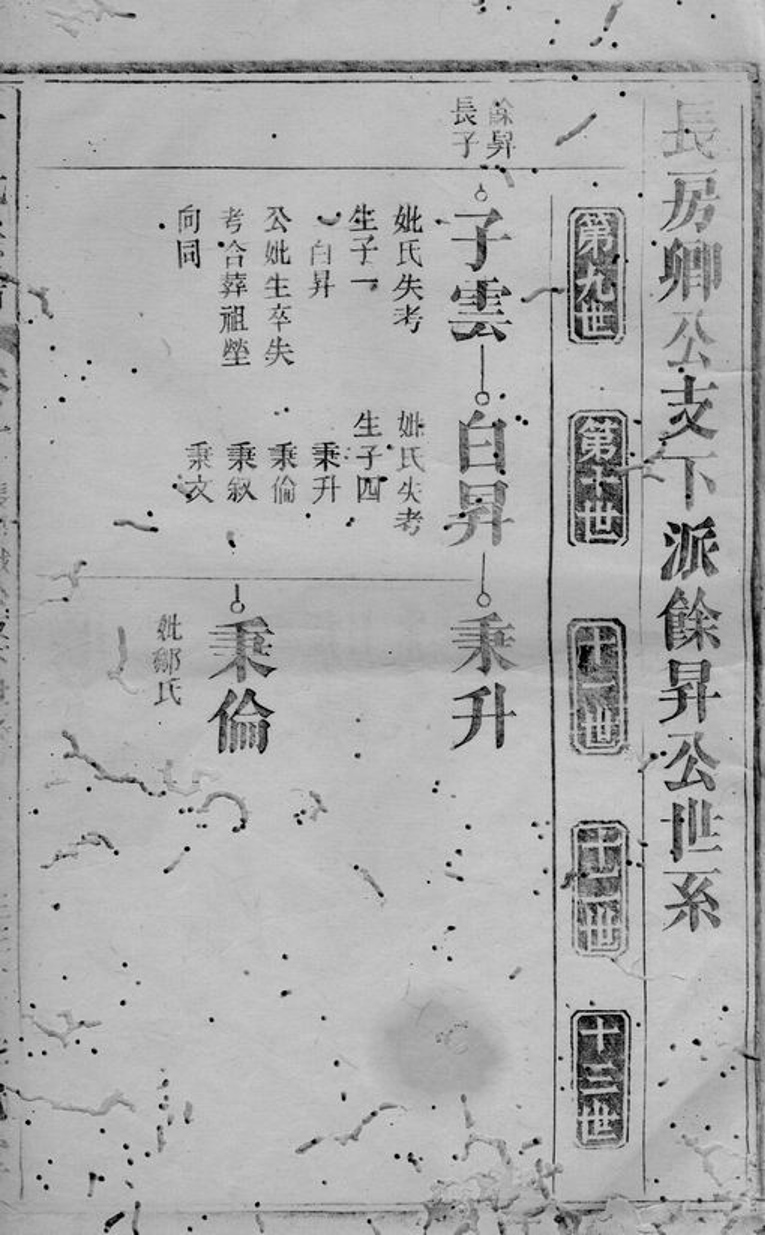 長房卿公支下派餘昇公世系
第九世
第十世
十一世
十二世
十三世
餘昇
長子
子雲
妣氏失考
生子一
白昇
公妣生卒失
考合葬祖塋
向同
白昇
妣氏失考
生子四
秉升
秉倫
秉叙
秉文
秉升
秉倫
妣鄒氏